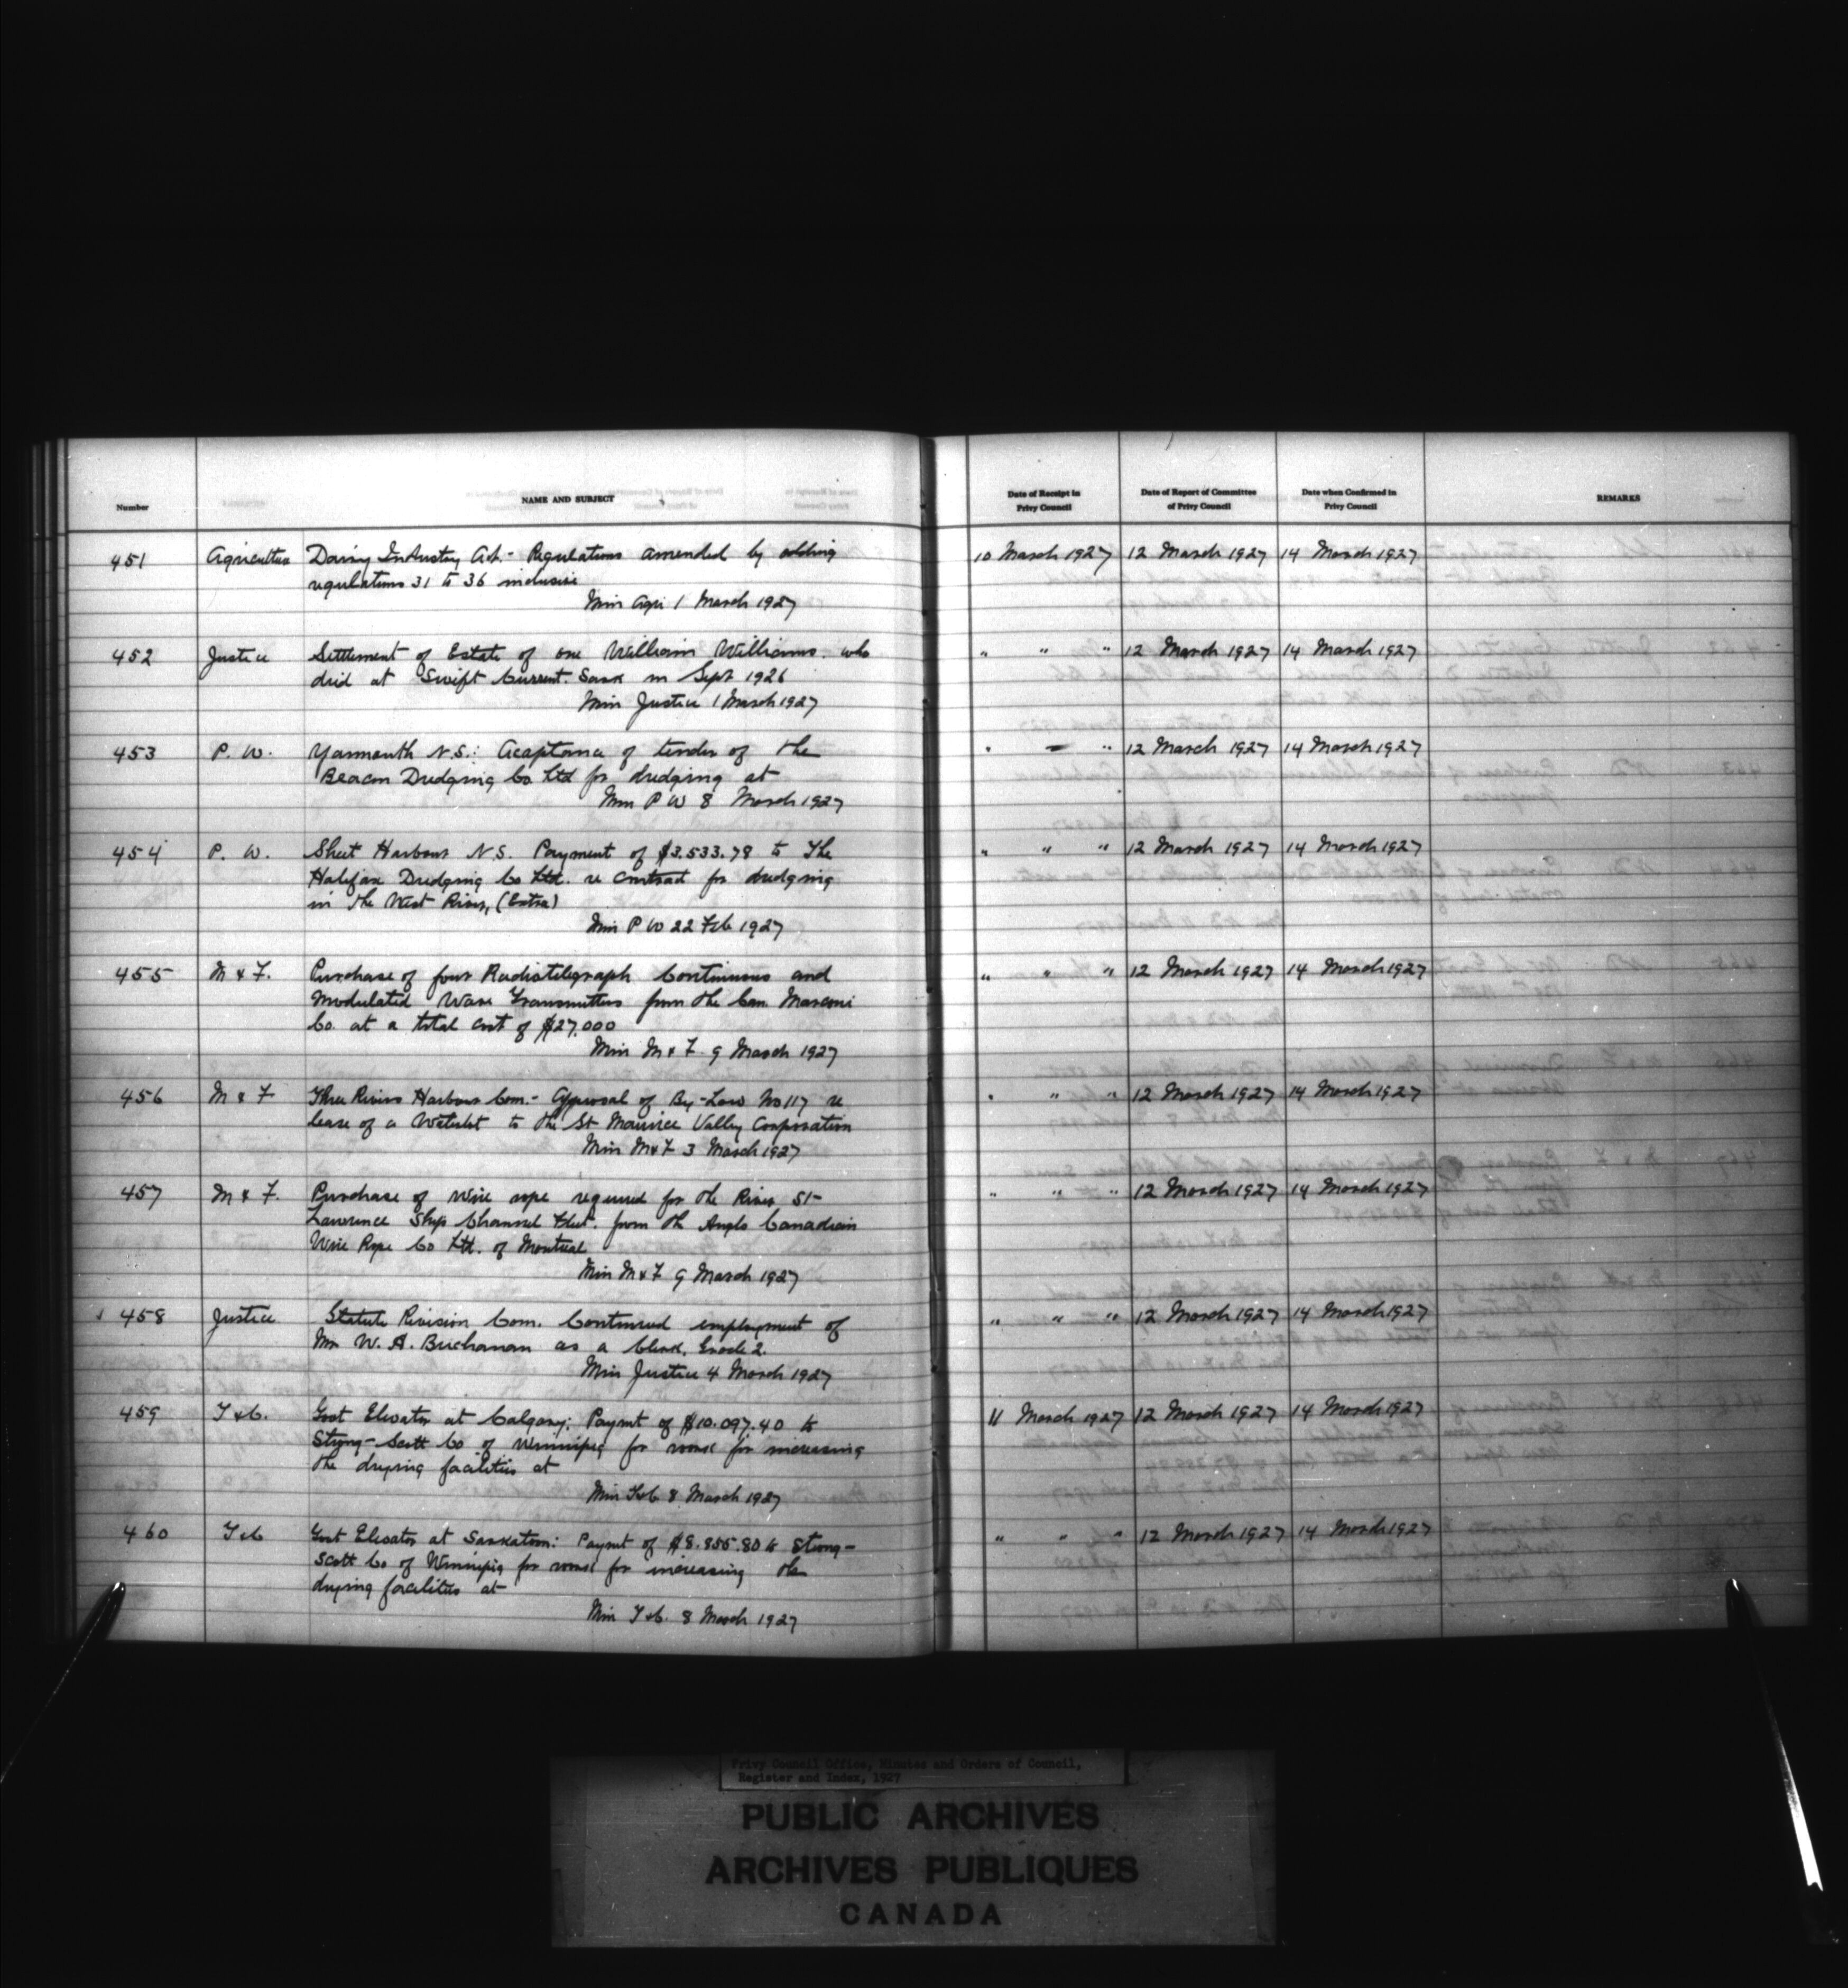 Number
NAME AND SUBJECT
Date of Receipt in
Privy Council
Date of Report of Committee
of Privy Council
Date when Confirmed in
Privy Council
REMARKS
451 Agriculture Dairy Industry Act.- Regulations amended by adding 10 March 1927 12 March 1927 14 March 1927
regulations 31 to 36 inclusive
Min Agri 1 March 1927
452 Justice Settlement of Estate of one William Williams. who " " " 12 March 1927 14 March 1927
died at Swift Current. Sask in Sept 1926
Min Justice 1 March 1927
453 P. W. Yarmouth N.S.: Acceptance of tender of the " " " 12 March 1927 14 March 1927
Beacon Dredging Co Ltd for dredging at
Min P W 8 March 1927
454 P. W. Sheet Harbour N.S. Payment of $3.533.78 to The " " " 12 March 1927 14 March 1927
Halifax Dredging Co Ltd. re contract for dredging
in the West River, (Extra)
Min P W 22 Feb 1927
455 M & F. Purchase of four Radiotelegraph Continuous and " " " 12 March 1927 14 March 1927
Modulated Wave Transmitters from the Can. Marconi
Co. at a total cost of $27.000
Min M & F. 9 March 1927
456 M & F Three Rivers Harbour Com.- Approval of By-Law No 117 re " " " 12 March 1927 14 March 1927
lease of a Waterlot to the St Maurice Valley Corporation
Min M & F 3 March 1927
457 M & F. Purchase of wire rope required for the River St- " " " 12 March 1927 14 March 1927
Lawrence Ship Channel Fleet. from the Anglo Canadian
Wire Rope Co Ltd. of Montreal
Min M & F 9 March 1927
458 Justice Statute Revision Com. Continued employment of " " " 12 March 1927 14 March 1927
Mr W. A. Buchanan as a Clerk, Grade 2.
Min Justice 4 March 1927
459 T & C. Govt Elevator at Calgary: Paymt of $10.097.40 to 11 March 1927 12 March 1927 14 March 1927
Strong-Scott Co of Winnipeg for work for increasing
the drying facilities at
Min T & C 8 March 1927
460 T & C Govt Elevator at Saskatoon: Paymt of $8.855.80 to Strong- " " " 12 March 1927 14 March 1927
Scott Co of Winnipeg for work for increasing the
drying facilities at
Min T & C. 8 March 1927
Privy Council Office, Minutes and Orders of Council,
Register and Index, 1927
PUBLIC ARCHIVES
ARCHIVES PUBLIQUES
CANADA